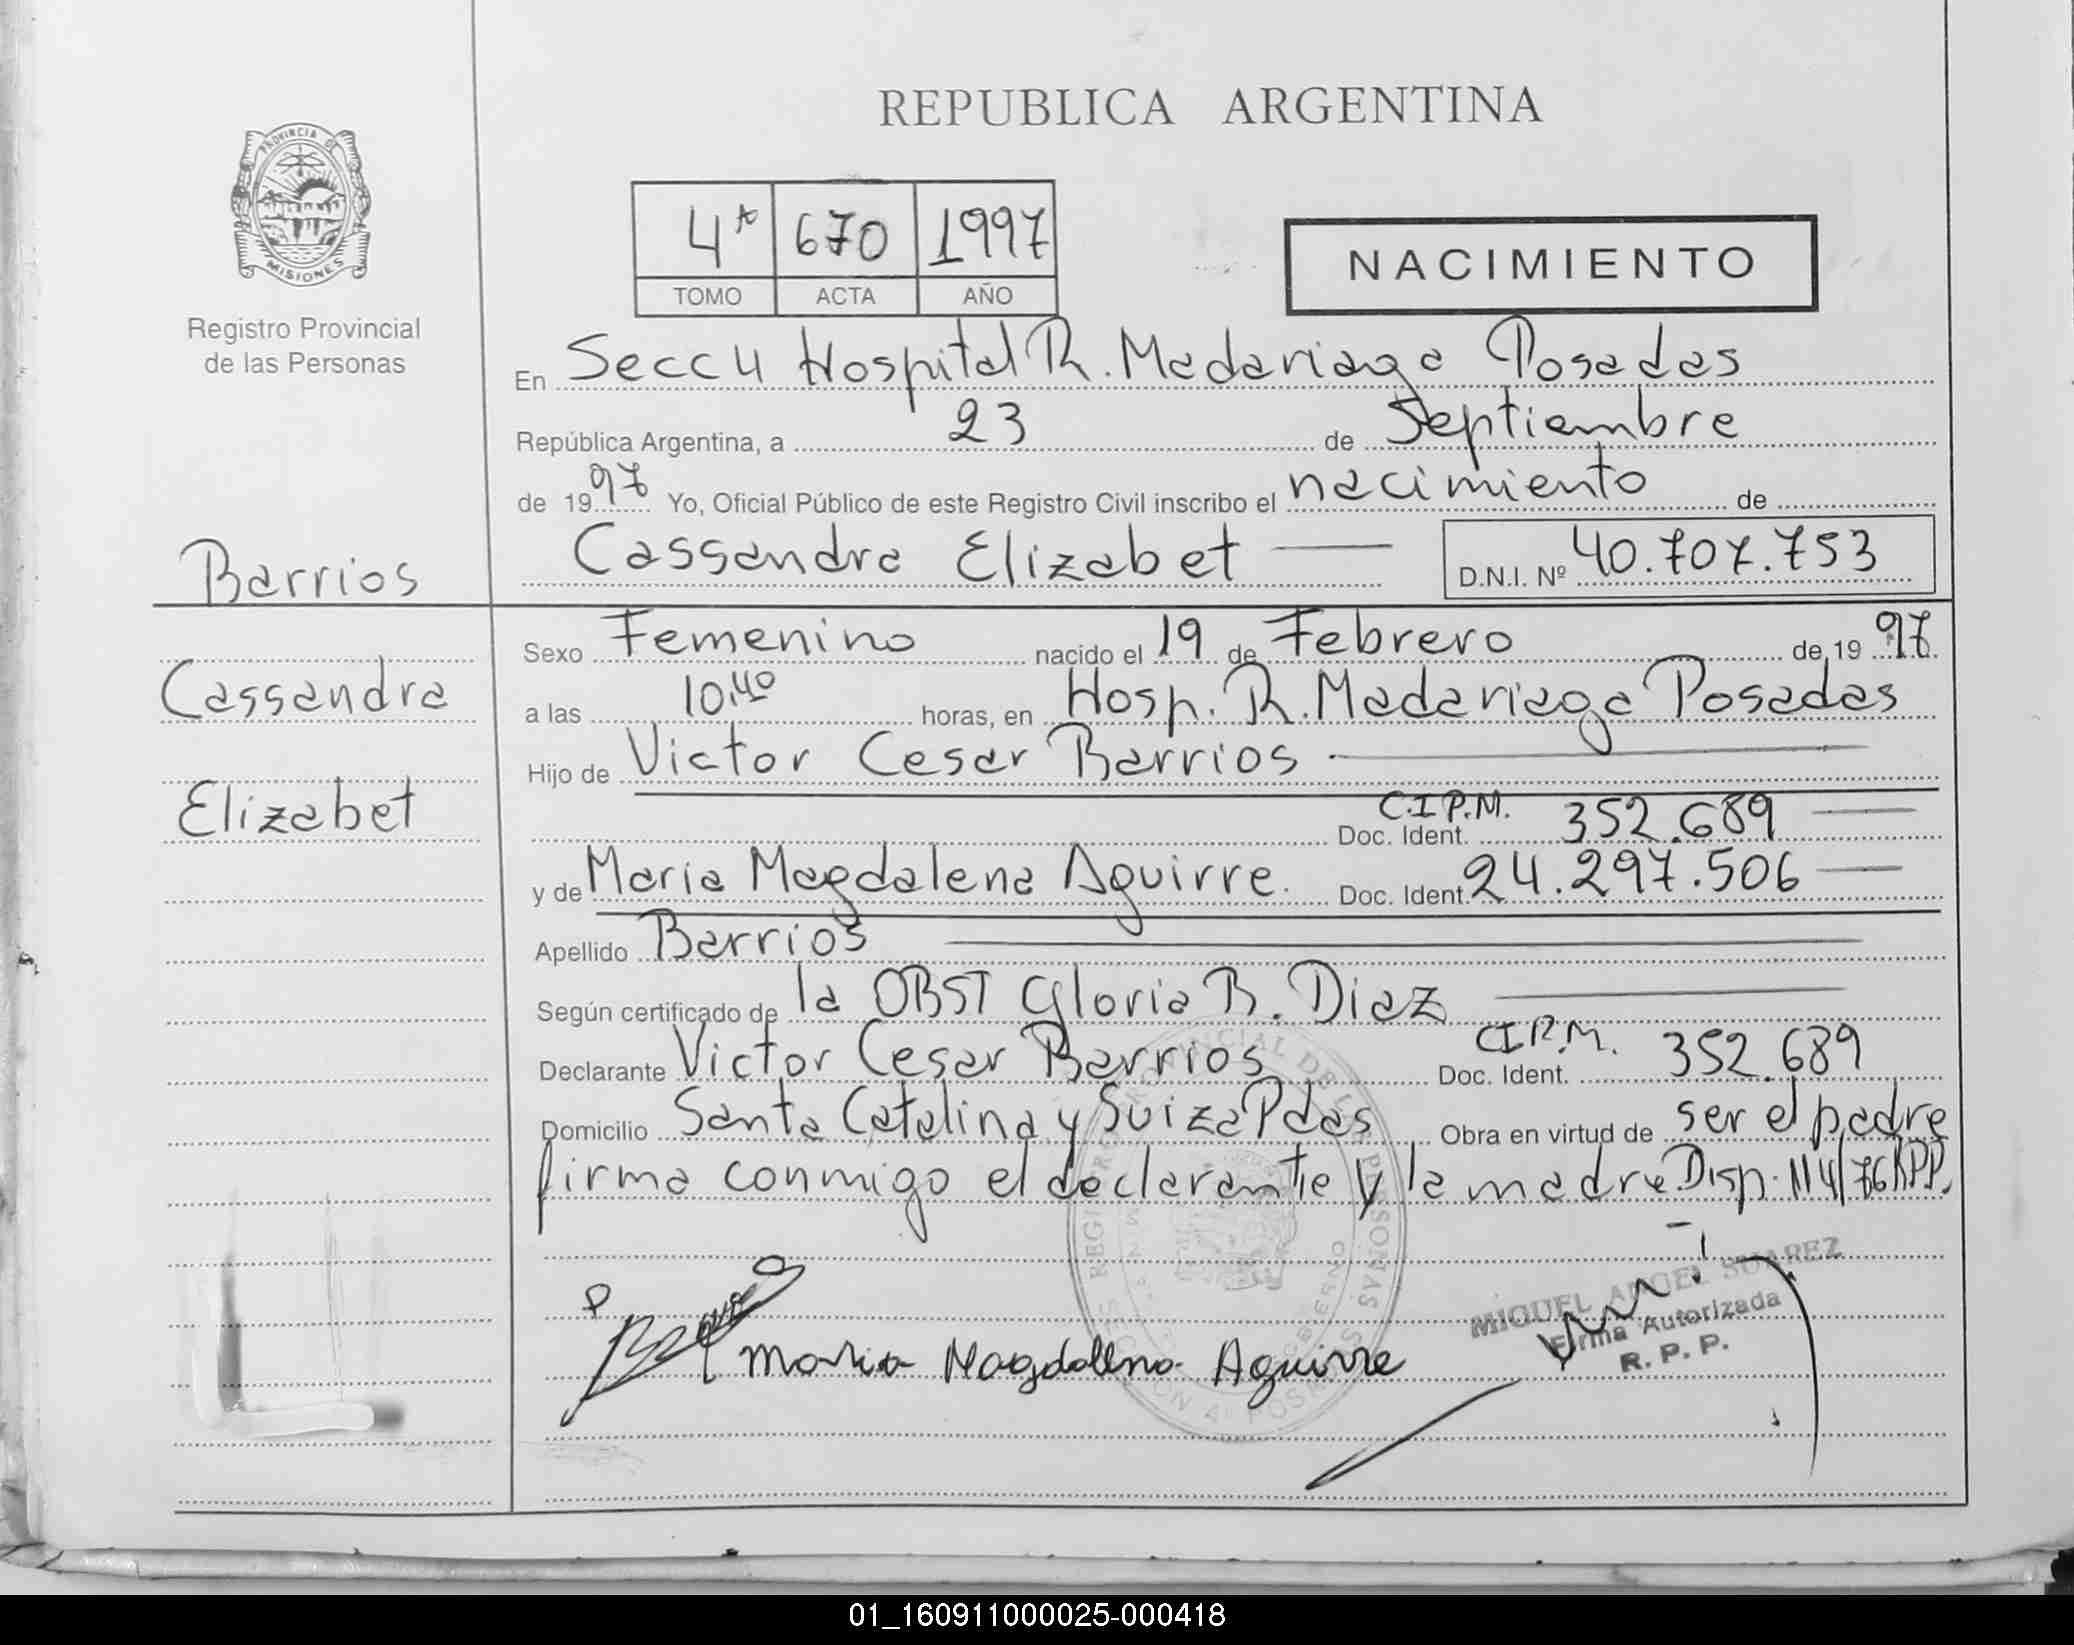 REPUBLICA ARGENTINA
PROVINCIA DE
MISIONES
Registro Provincial
de las Personas
4º 670 1997
TOMO ACTA AÑO
NACIMIENTO
En Secc 4 Hospital R. Madariaga Posadas
República Argentina, a 23 de Septiembre
de 1997 Yo, Oficial Público de este Registro Civil inscribo el nacimiento de
Cassandra Elizabet D.N.I. Nº 40.707.753
Barrios
Cassandra
Elizabet
Sexo Femenino nacido el 19 de Febrero de 1997
a las 10.40 horas, en Hosp. R. Madariaga Posadas
Hijo de Victor Cesar Barrios
C.I.P.M. Doc. Ident. 352.689
y de Maria Magdalena Aguirre. Doc. Ident. 24.297.506
Apellido Barrios
Según certificado de la OBST Gloria B. Diaz
Declarante Victor Cesar Barrios C.I.P.M. Doc. Ident. 352.689
Domicilio Santa Catalina y Suiza Pdas Obra en virtud de ser el padre
firma conmigo el declarante y la madre Disp. 114/76 RPP.
MIGUEL ANGEL SUAREZ
Firma Autorizada
R. P. P.
Maria Magdalena Aguirre
01_160911000025-000418